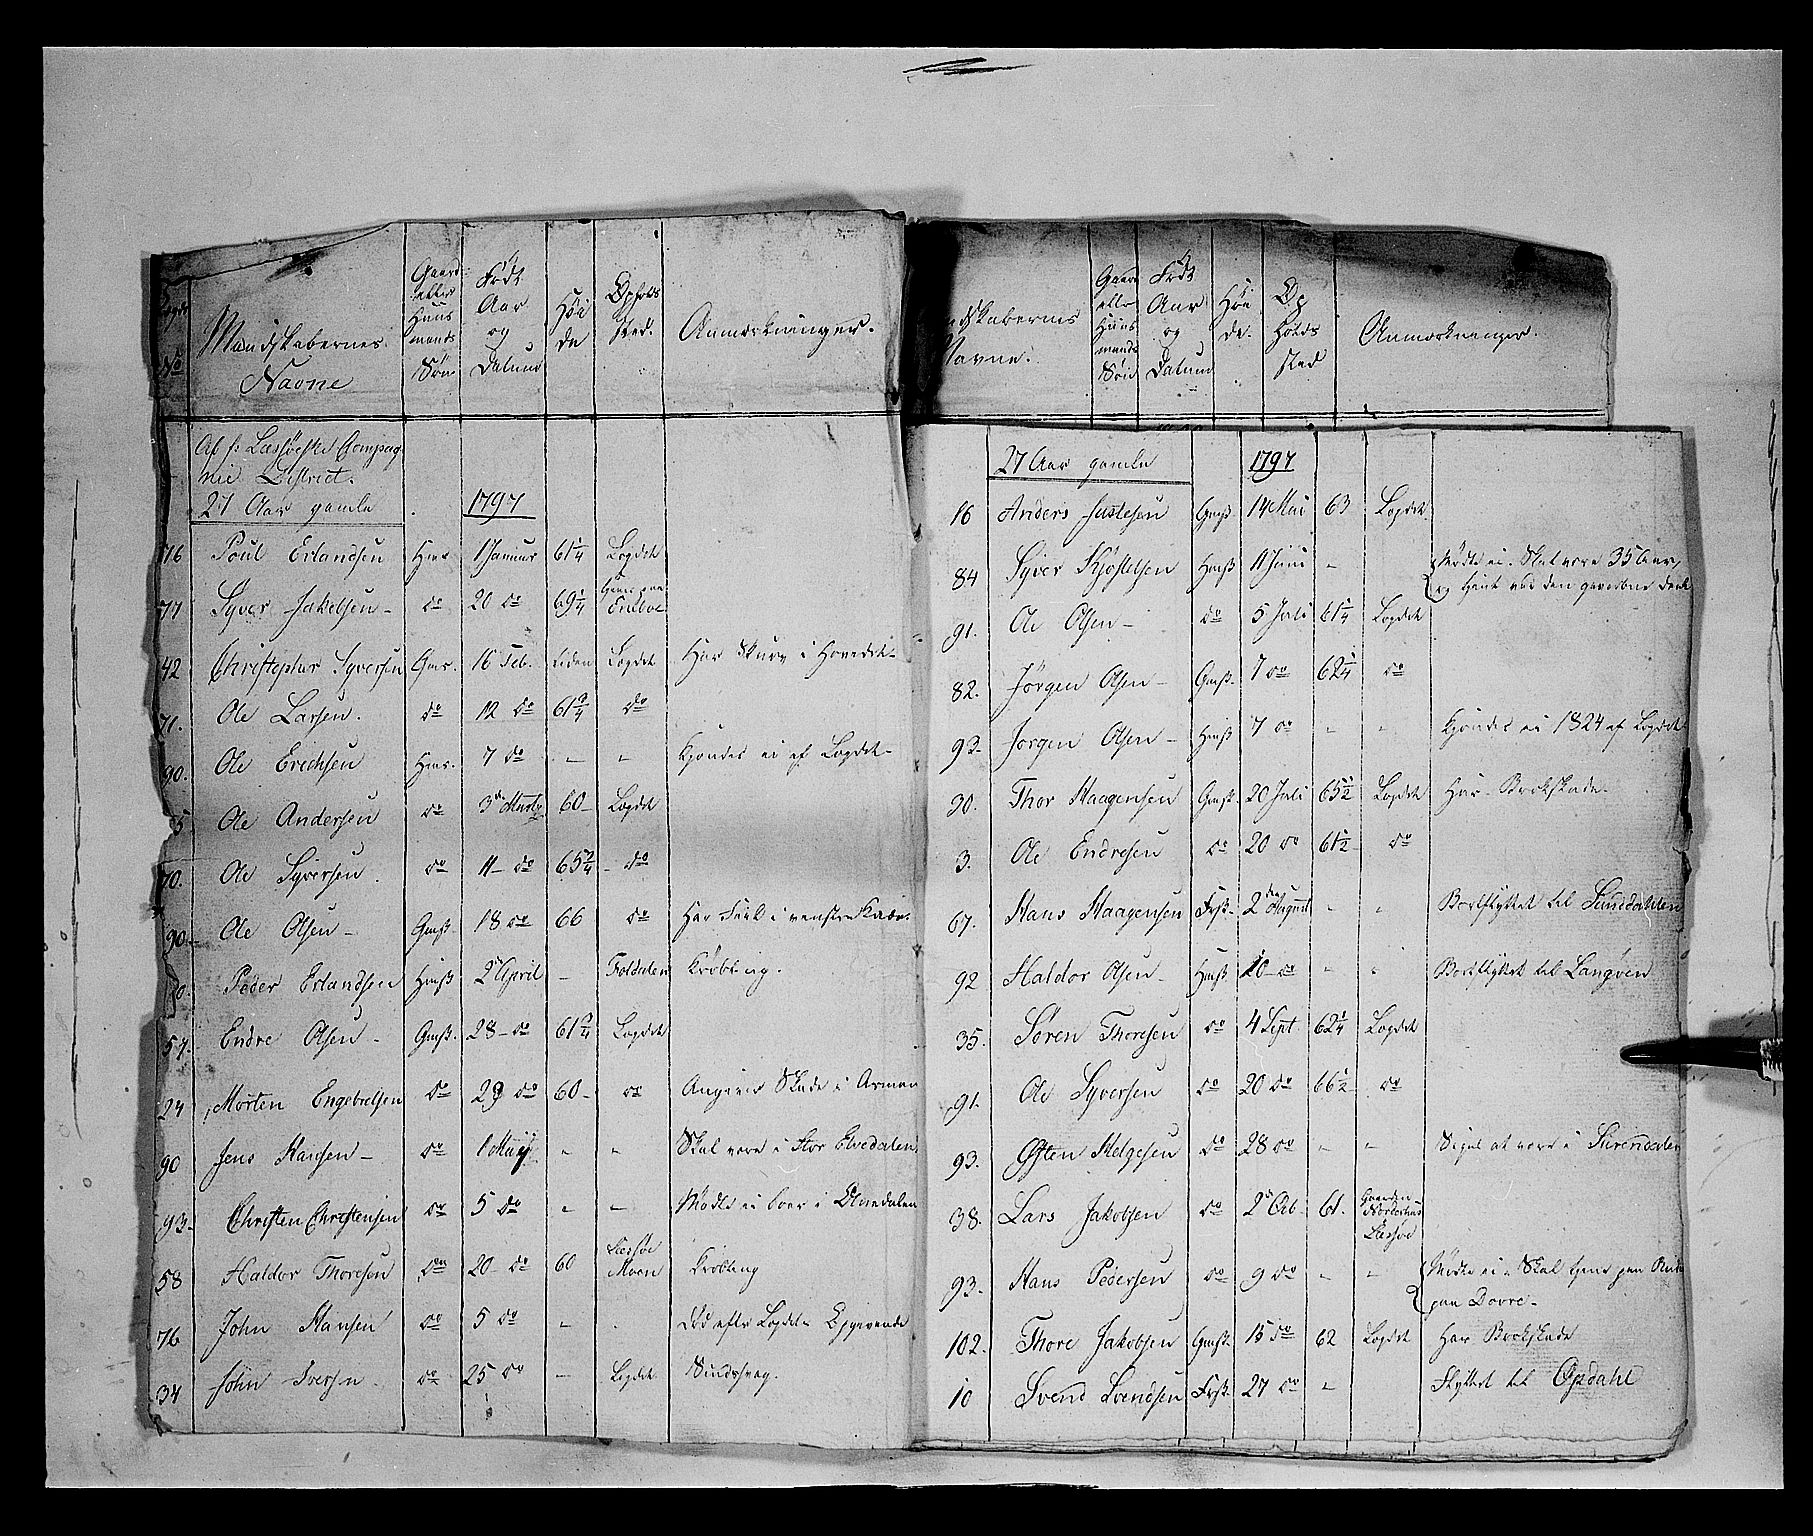 Mandskabernes Navne | Gaard eller Huus mands Søn | Født Aar og Datum | Høi de | Opholds sted. | Anmærkninger.
Af Læssøeske Compag
nie District.
27 Aar gamle | 1797
76 Poul Erlandsen | 1 Januar | 61 1/4 | Logdet
77 Syver Jakobsen - | do | 20 do | 69 1/4
42 Christopher Syversen | Gms. | 16 Feb. | Liden | Logdet | Har Skurv i Hovedet -
71. Ole Larsen. | do | 12 do | 61 3/4 | do
90. Ole Erichsen | Hms. | 7 do | - | - | Kjendes ei af Logdet -
5 Ole Andersen | do | 3de Marty | 60 - | Logdet
70. Ole Syversen. | do | 11 - do | 65 3/4 - | do
90. Ole Olsen - | Gmß. | 18 do | 66 | do | Har Feil i venstre
20. Peder Erlandsen | Hmß | 2d April | - | Foldalen | Krøbling.
57. Endre Olsen - | Gmß. | 28 - do | 61 3/4 | Logdet
24 Morten Engebretsen | do | 29 do | 60 - | do | Angiver Skade i Armen
90 Jens Hansen - | do | 1 May | - | - | Skal være i Stor Elvedalen
93. Christen Christensen | do | 5 do | - | - | Mødte ei boer i
58 Haldor Thoresen | do | 20 - do | 60 | Læssøe Moen | Krøbling
76 John Hansen | do | 5 do | - | . | Død efter Logdets Opgivende
34 John Iversen - | do | 25 do | - | Logdet | Sindssvag.
Mandskabernes Navne. | Gaard eller Huus mands Søn | Født Aar og Datum | Høi de. | Op holds sted | Anmærkninger.
27 Aar gamle | 1797
16 Anders Justesen | Gmß. | 14 Mai | 63 | Logdet
84 Syver Kjøstelsen | Hmß | 11 Juni | - | Mødte ei. Skal være 35 Aar,
91. Ole Olsen - | do | 5 Juli | 61 1/4 | Logdet
82. Jørgen Olsen - | Gmß. | 7 do | 62 1/4 | do
93. Jørgen Olsen - | Hmß | 7 do | - | - | Kjendes ei 1824 af Logdet
90. Thor Haagensen | Gmß. | 20 Juli | 65 1/2 | Logdet | Har Brokskade.
3. Ole Endresen | do | 20 do | 61 1/2 | do
67. Hans Haagensen | 2den August | - | - | Bortflyttet til Sunddahlen
92 Haldor Olsen - | Hmß | 10 - do | - | - | Bortflyttet til
35. Søren Thoresen | do | 4 Sept | 62 1/4 | Logdet
91. Ole Syversen | do | 20 do | 66 1/2 | do
93. Østen Helgesen | do | 28 do | - | - | Siges at være i Surendalen
38. Lars Jakobsen | do | 2d Octb. | 61. | Gaarden Læssøe
93. Hans Pedersen | do | 9 do | - | - | Mødte ei. Skal tjene paa
paa Dovre -
102. Thore Jakobsen | Gmß. | 15 do | 62 | Logdet | Har Brokskade
10 Svend Svendsen | 27 do | - | Flyttet til Opdahl